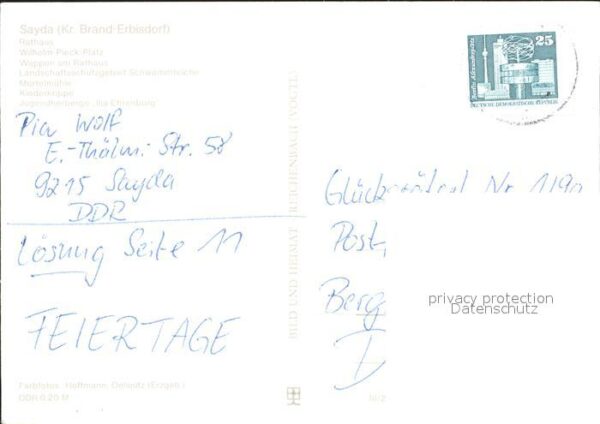 Sayda (Kr. Brand-Erbisdorf)
Rathaus
Wilhelm-Pieck-Platz
Wappen am Rathaus
Landschaftsschutzgebiet
Mörtelmühle
Jugendherberge „Ilja Ehrenburg"
Pia Wolf
E.-Thälm.-Str. 58
9215 Sayda
DDR
Lösung Seite 11
FEIERTAGE
Farbfotos: Hoffmann, Oelsnitz (Erzgeb.)
DDR 0,20 M
BILD UND HEIMAT REICHENBACH (VOGTL)
25
Berlin, Alexanderplatz
DEUTSCHE DEMOKRATISCHE REPUBLIK
Nr 119
Post
Berg
privacy protection
Datenschutz